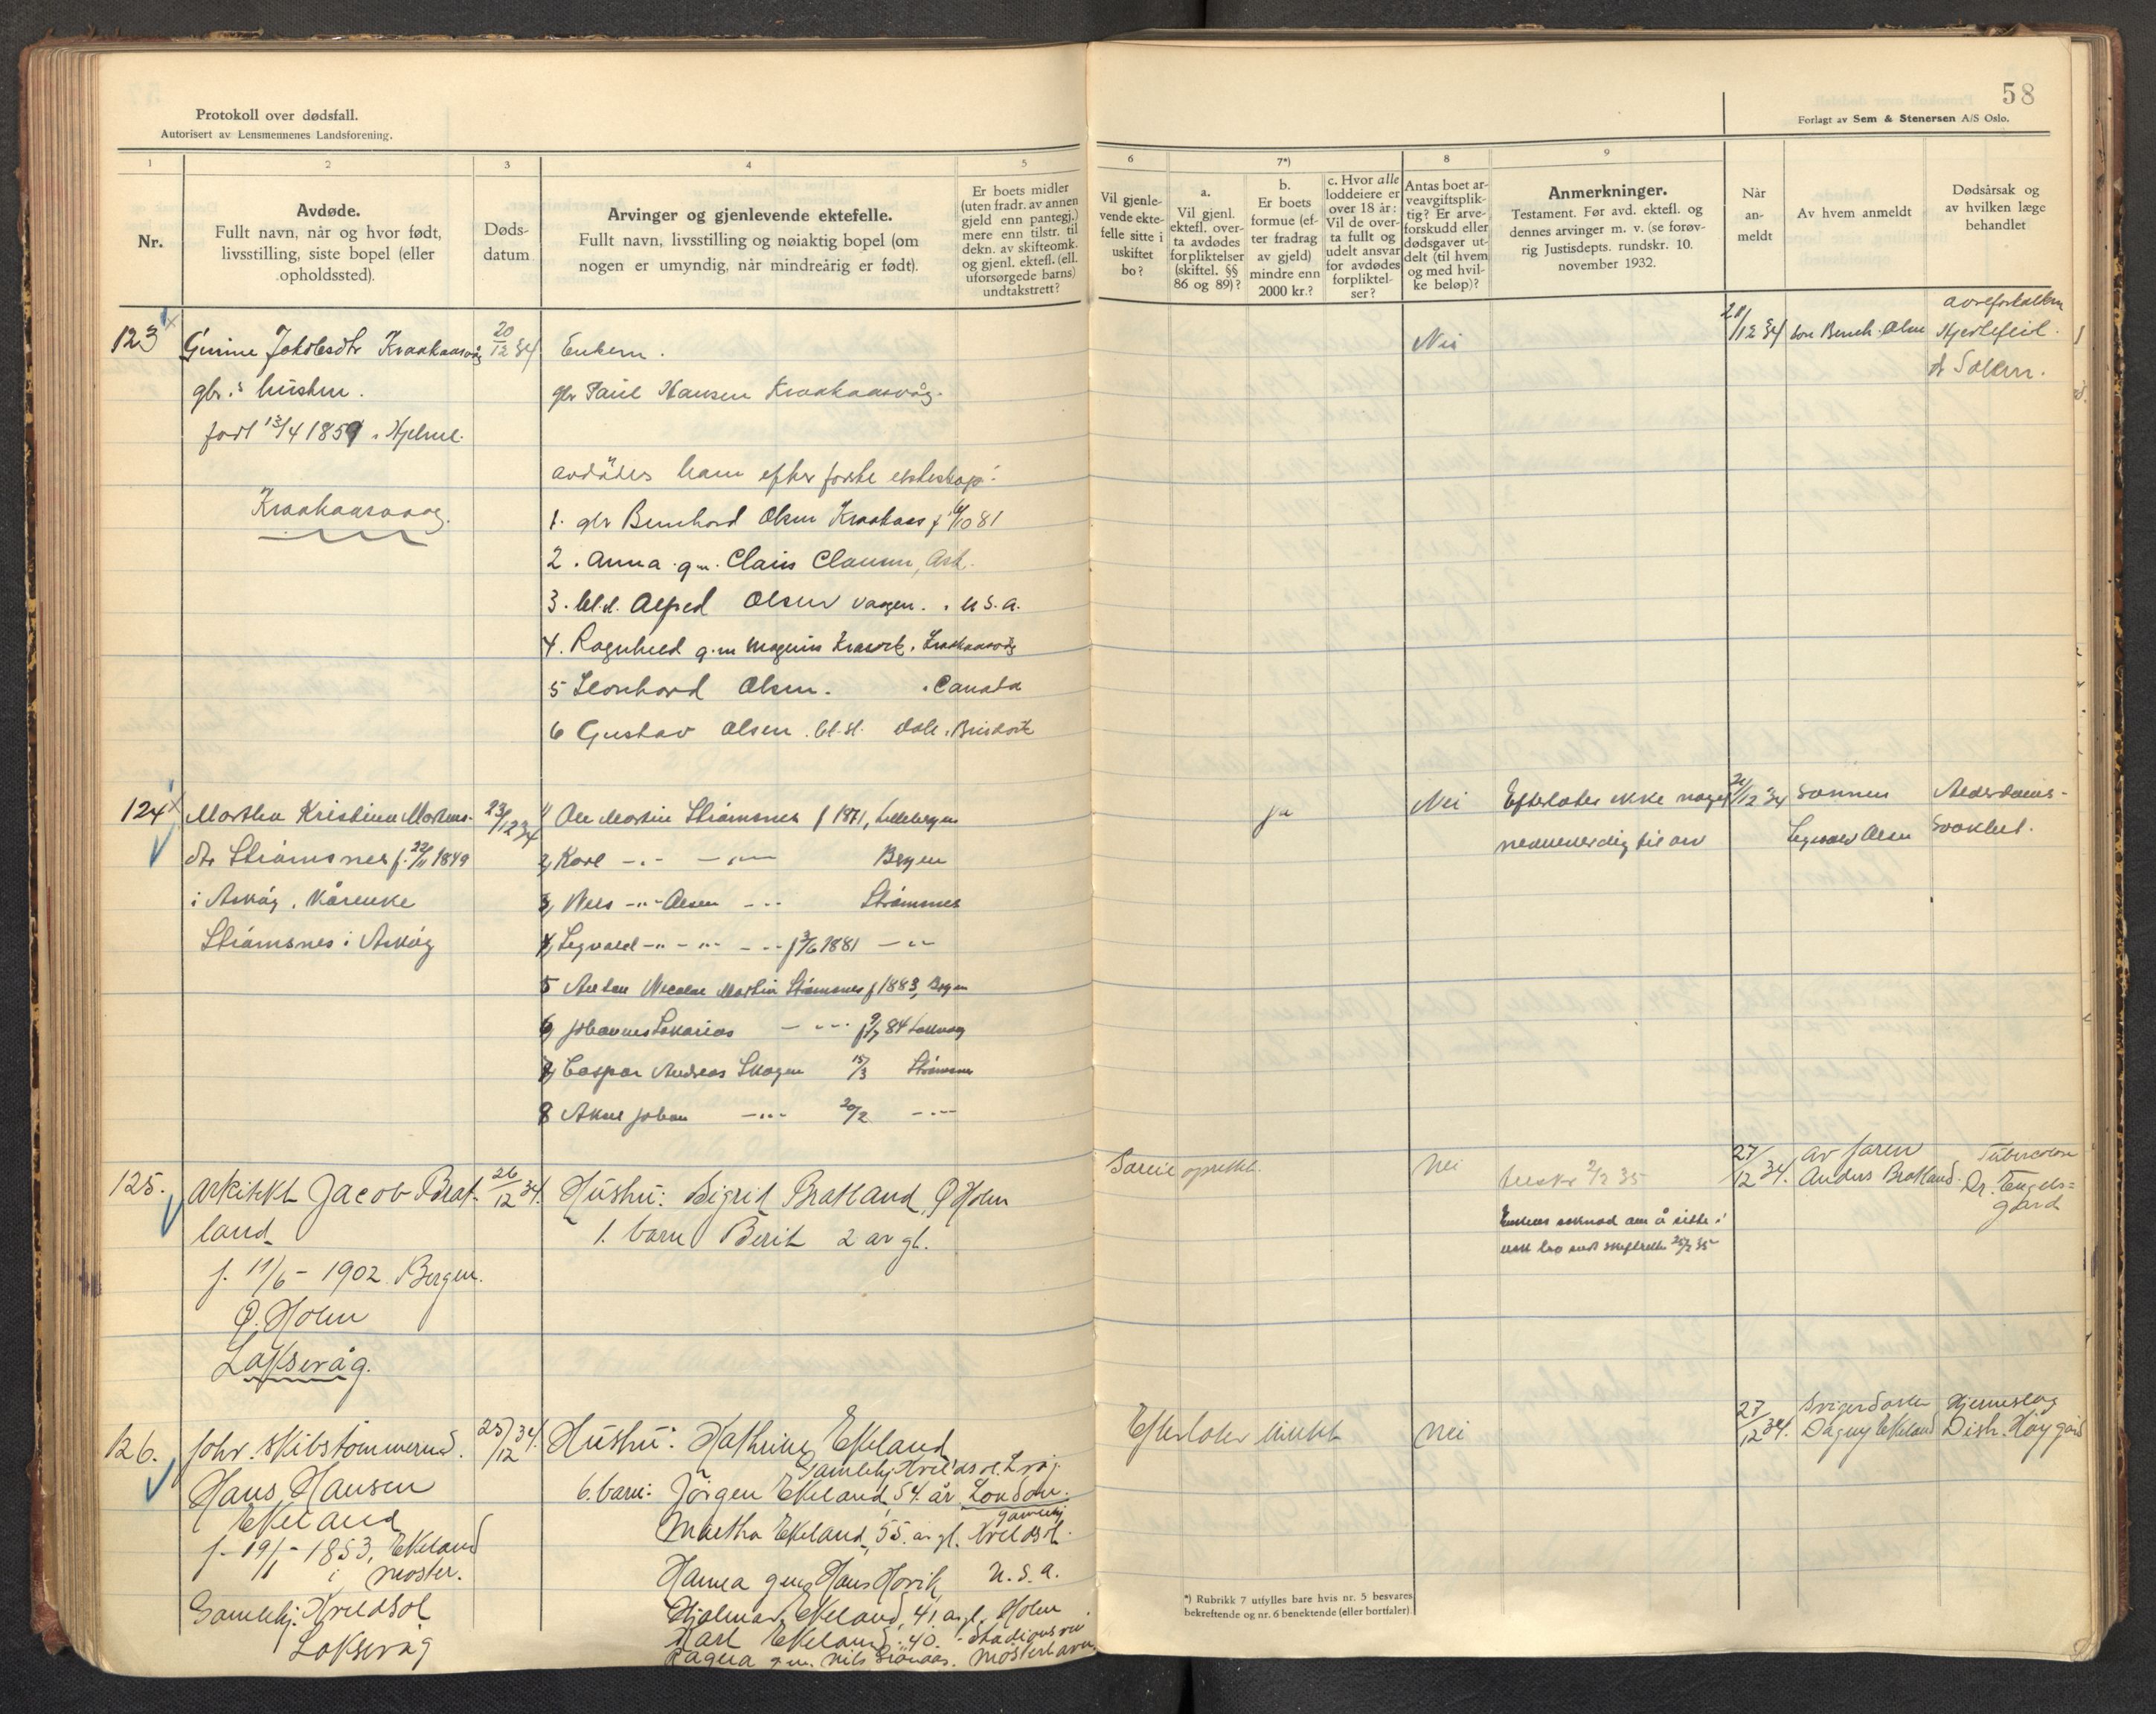 58
Protokoll over dødsfall.
Autorisert av Lensmennenes Landsforening.
Forlagt av Sem & Stenersen A/S Oslo.
1
2
3
4
5
6
7*)
8
9
Nr.
Avdøde.
Fullt navn, når og hvor født,
livsstilling, siste bopel (eller
opholdssted).
Døds-
datum
Arvinger og gjenlevende ektefelle.
Fullt navn, livsstilling og nøiaktig bopel (om
nogen er umyndig, når mindreårig er født).
Er boets midler
(uten fradr. av annen
gjeld enn pantegj.)
mere enn tilstr. til
dekn. av skifteomk.
og gjenl. ektef. (ell.
uforsørgede barns)
undtakstrett?
Vil gjenle-
vende ekte-
felle sitte i
uskiftet
bo?
a.
Vil gjenl.
ektefl. over-
ta avdødes
forpliktelser
(skiftel. §§
86 og 89)?
b.
Er boets
formue (ef-
ter fradrag
av gjeld)
mindre enn
2000 kr.?
c. Hvor alle
loddeiere er
over 18 år:
Vil de over-
ta fullt og
udelt ansvar
for avdødes
forpliktel-
ser?
Antas boet ar-
veavgiftsplik-
tig? Er arve-
forskudd eller
dødsgaver ut-
delt (til hvem
og med hvil-
ke beløp)?
Anmerkninger.
Testament. Før avd. ektefl. og
dennes arvinger m. v. (se forøv-
rig Justisdepts. rundskr. 10.
november 1932.
Når
an-
meldt
Av hvem anmeldt
Dødsårsak og
av hvilken læge
behandlet
123
gbr.s hustru.
født 13/4 1859 i Hjelme.
Kraakaasvaag.
20/12 34
gbr Paul Hansen Kraakaasvåg.
avdødes barn efter første ekteskap:
1. gbr Bernhard Olsen Kraakaas
2. Anna g.m. Claus Clausen, Ask.
3. Alfred Olsen U.S.A.
4. Ragnhild g.m. Magnus
5 Leonhard Olsen. Canada
6 Gustav Olsen
Nei
Hjertefeil.
124
Martha Kristina Martens-
dtr Strømsnes f. 22/11 1849
i Askøy. Kårenke
Strømsnes i Askøy
23/12 34
1) Ole Martin Strømsnes f 1871,
2) Karl -"- -"- Bergen
3) Nils -"- Olsen -"- Strømsnes
4) Sigvald -"- -"- -"- f 3/6 1881 -"-
5 Anton Nicolai Martin Strømsnes f 1883, Bergen
6) Johannes Sakarias -"- Laksvåg
7) Caspar Andreas Skogen 15/3 Strømsnes
8 Aksel Johan -"- 20/2 -"-
ja
Nei
Efterlater ikke noget
nevneverdig til arv
Sønnen
Sigvald Olsen
Alderdoms-
svakhet.
125.
Arkitekt Jacob Brat-
land
f. 11/6 - 1902 Bergen.
Ø. Holm
Laksevåg.
26/12 34.
Hustru: Sigrid Bratland, Ø Holm
1. barn Berit 2 år gl.
nei
2/2 35
27/12 34.
av faren
Anders Bratland.
Tuberculose
Dr. Engels=
gård
126.
forhv. skibstømmermd.
Hans Hansen
Ekeland
f. 19/1 - 1853, Ekeland
i Moster.
Gamlehj. Kveldsol
Laksevåg
25/12 34.
Hustru: Kathrine Ekeland
Gamlehj. Kveldsol. L.våg.
6. barn: Jørgen Ekeland, 54. år London.
Martha Ekeland, 55. år gl. Gamlehj. Kveldsol.
Hanna gm. Hans Hovik U.S.A.
Hjalmar Ekeland, 41 år gl. Holm
Karl Ekeland, 40. Stadionsvei
Ragna g.m. Nils Mosterhavn.
Efterlater intet
nei
27/12 34.
Svigerdatter
Dagny Ekeland
Hjerneslag
Distr. Høygård
*) Rubrikk 7 utfylles bare hvis nr. 5 besvares
bekreftende og nr. 6 benektende (eller bortfaler).